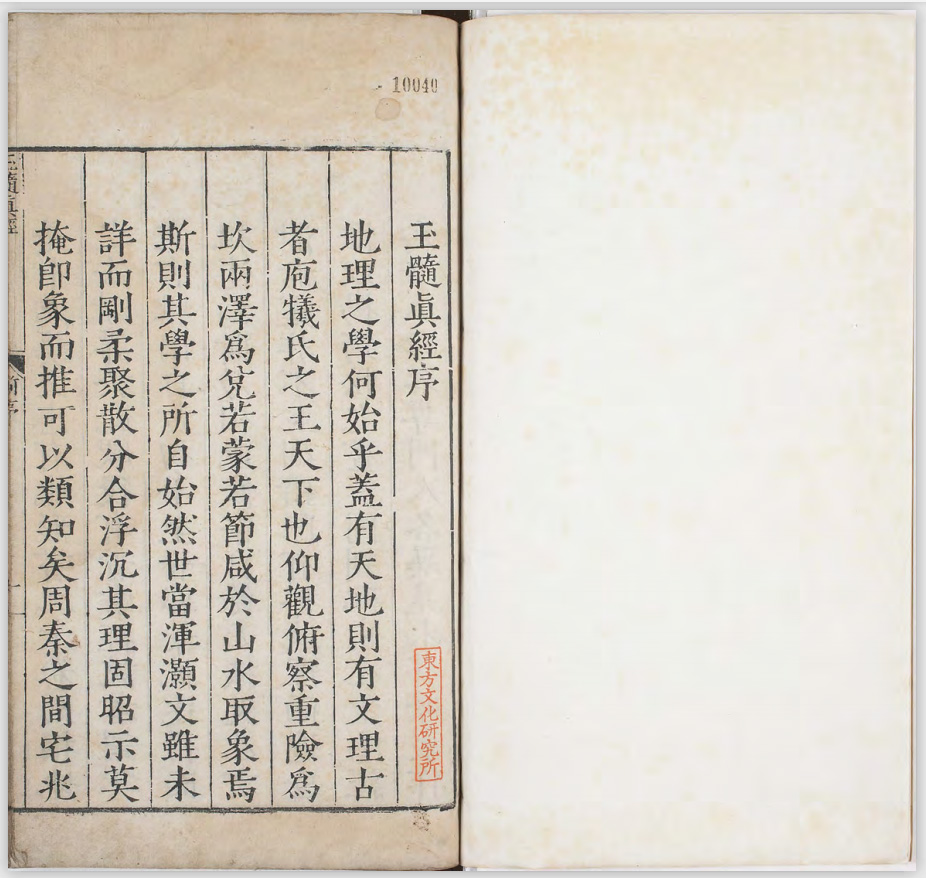 10040
玉髓眞經序
地理之學何始乎蓋有天地則有文理古
者庖犧氏之王天下也仰觀俯察重險爲
坎兩澤爲兌若蒙若節咸於山水取象焉
斯則其學之所自始然世當渾灝文雖未
詳而剛柔聚散分合浮沉其理固昭示莫
掩卽象而推可以類知矣周秦之間宅兆
東方文化硏究所
髓眞經
前序